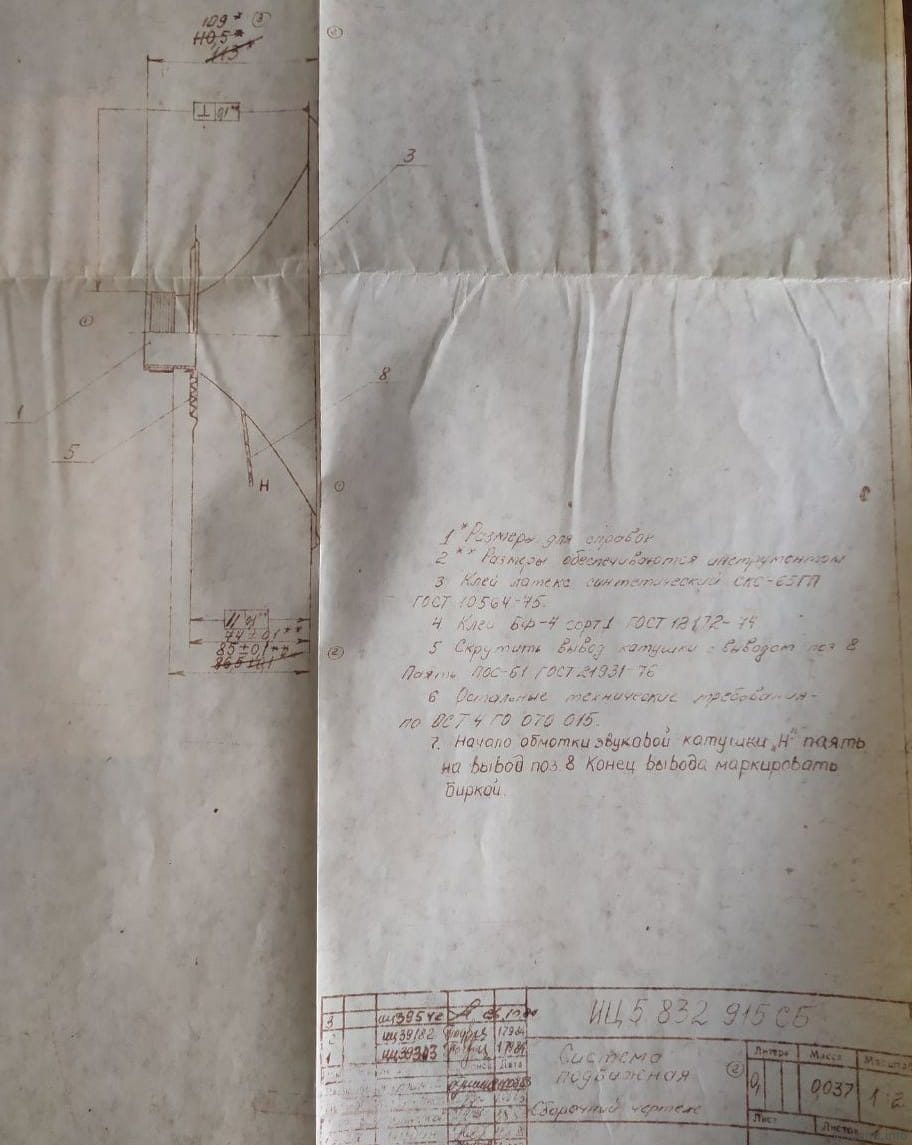 109* ③
110,5*
113*
②
3
①
1
8
5
Н
①
74±0,1**
85±0,1**
②
1 * Размеры для справок
2 ** Размеры обеспечиваются инструментом
3 Клей латекс синтетический СКС-65ГП
ГОСТ 10564-75.
4 Клей БФ-4 сорт 1 ГОСТ 12172-74
5 Скрутить вывод катушки с выводом поз 8
Паять ПОС-61 ГОСТ 21931-76
6 Остальные технические требования-
по ОСТ 4 ГО 070 015.
7. Начало обмотки звуковой катушки "Н" паять
на вывод поз. 8 Конец вывода маркировать
биркой.
ИЦ5 832 915 СБ
3
2 ИЦ39182
1 ИЦ39303
Дата
Система
подвижная
②
Сборочный чертеж
Литера Масса Масштаб
0,037 1:2
Лист Листов 1